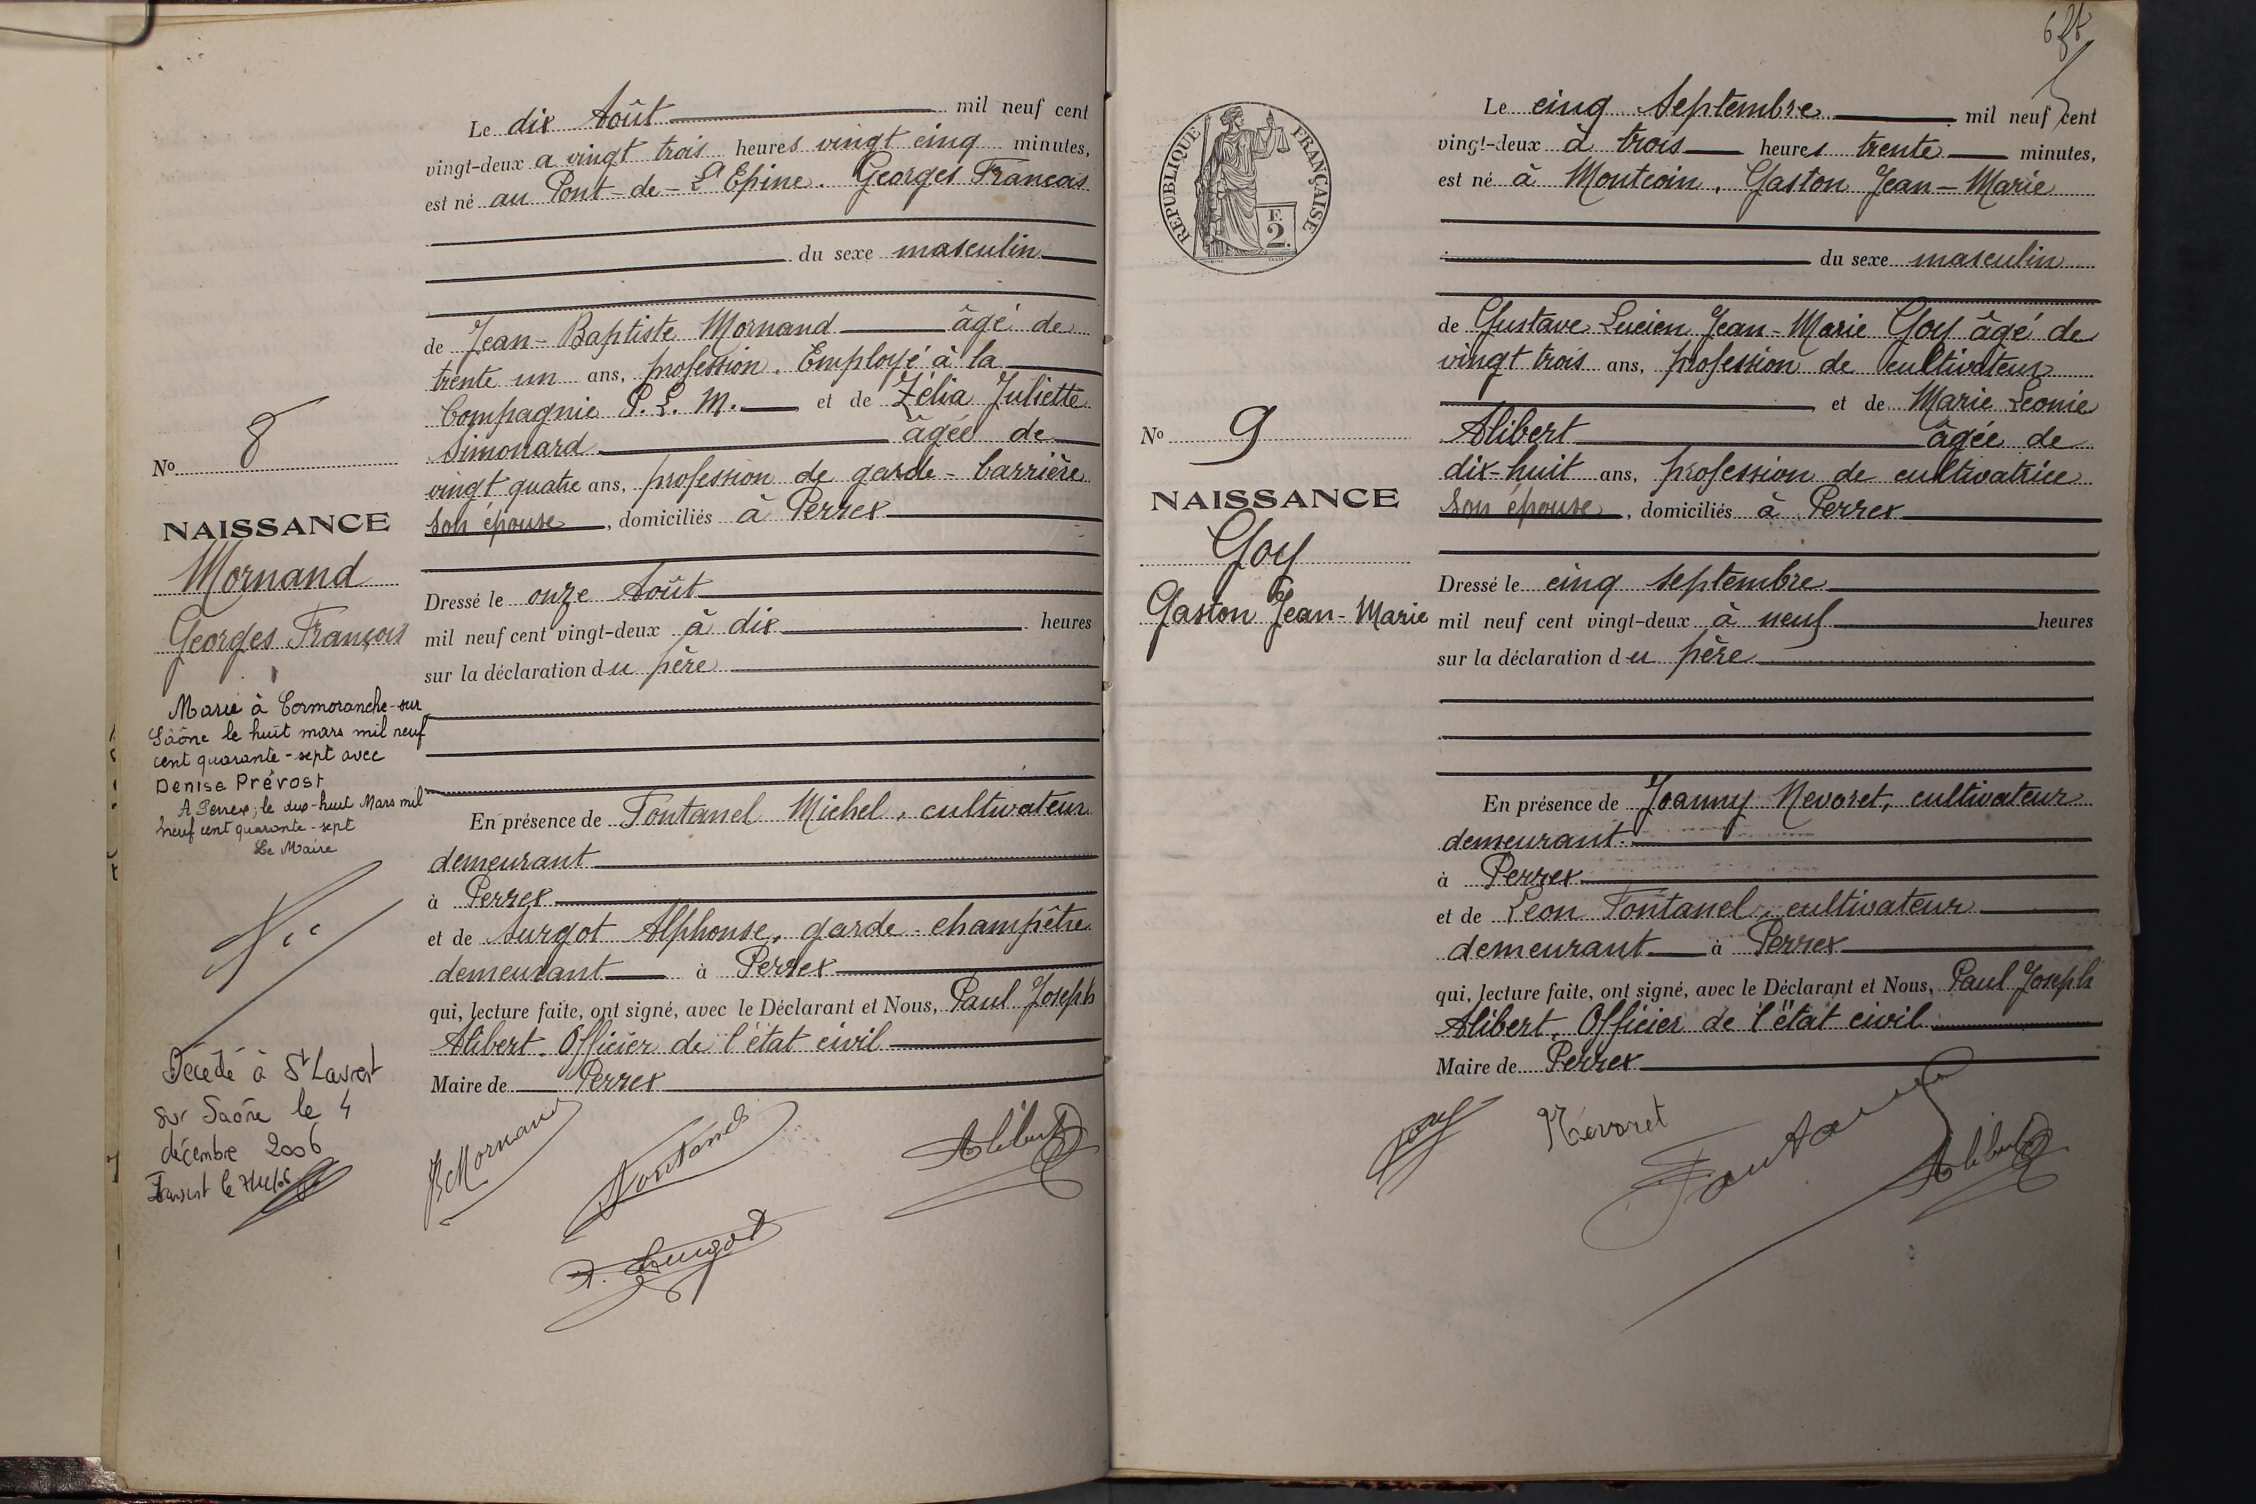 Le dix Août mil neuf cent
vingt-deux a vingt trois heures vingt cinq minutes,
est né au Pont-de-L'Epine. Georges François
du sexe masculin
de Jean-Baptiste Mornand âgé de
trente un ans, profession. Employé à la
Compagnie P. L. M. et de Zélia Juliette
Simonard âgée de
vingt quatre ans, profession de garde-barrière
son épouse, domiciliés à Perrex
Dressé le onze Août
mil neuf cent vingt-deux à dix heures
sur la déclaration du père
En présence de Fontanel Michel, cultivateur
demeurant
à Perrex
et de Surgot Alphonse, garde-champêtre
demeurant à Perrex
qui, lecture faite, ont signé, avec le Déclarant et Nous, Paul Joseph
Alibert. Officier de l'état civil
Maire de Perrex
No 8
NAISSANCE
Mornand
Georges François
Marié à Cormoranche-sur
Saône le huit mars mil neuf
cent quarante-sept avec
Denise Prévost
A Perrex, le dix-huit Mars mil
neuf cent quarante-sept
Le Maire
Décédé à St Laurent
sur Saône le 4
décembre 2006
Mornand
Fontanel
Alibert
A. Surgot
6
RÉPUBLIQUE FRANÇAISE
F.
2.
No 9
NAISSANCE
Goy
Gaston Jean-Marie
Le cinq Septembre mil neuf cent
vingt-deux à trois heures trente minutes,
est né à Montcoin. Gaston Jean-Marie
du sexe masculin
de Gustave Lucien Jean-Marie Goy âgé de
vingt trois ans, profession de cultivateur
et de Marie Léonie
Alibert âgée de
dix-huit ans, profession de cultivatrice
son épouse, domiciliés à Perrex
Dressé le cinq septembre
mil neuf cent vingt-deux à neuf heures
sur la déclaration du père
En présence de Joanny Nevoret, cultivateur
demeurant
à Perrex
et de Léon Fontanel, cultivateur
demeurant à Perrex
qui, lecture faite, ont signé, avec le Déclarant et Nous, Paul Joseph
Alibert. Officier de l'état civil
Maire de Perrex
Goy
Névoret
Fontanel
Alibert